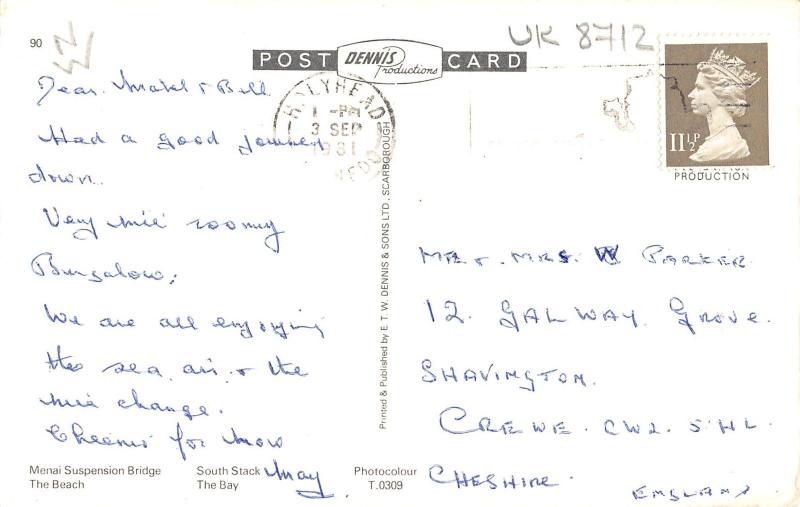 90
UK 8712
POST DENNIS Productions CARD
HOLYHEAD
1 - PM
3 SEP
1981
GWYNEDD
11½P
PRODUCTION
Dear Mabel & Bell
Had a good journey
down.
Very nice roomy
Bungalow,
We are all enjoying
the sea air & the
nice change.
Cheerio for now
May
Printed & Published by E. T. W. DENNIS & SONS LTD., SCARBOROUGH
MR & MRS. W PARKER
12. GALWAY. Grove.
SHAVINGTON.
CREWE. CW2. 5HL.
CHESHIRE.
ENGLAND
Menai Suspension Bridge South Stack Photocolour
The Beach The Bay T.0309